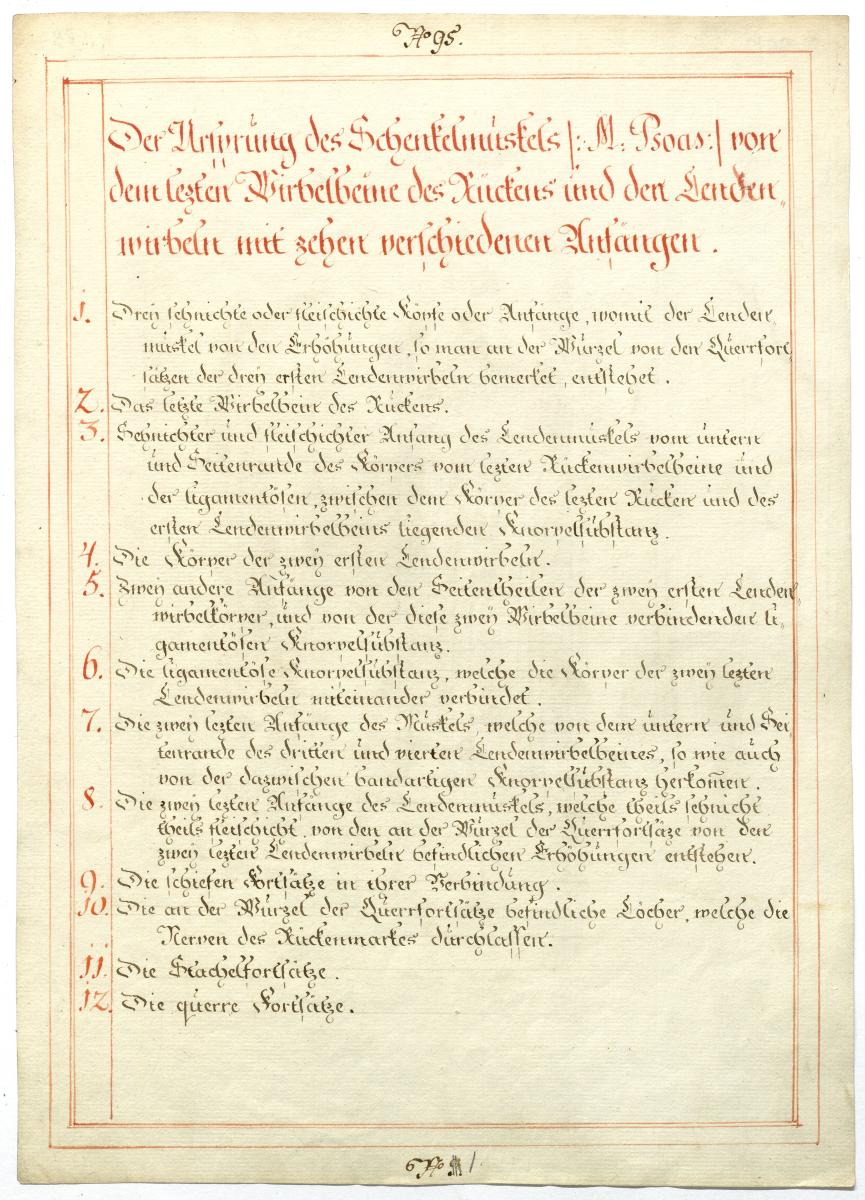 No 95.
Der Ursprung des Schenkelmuskels /: M: Psoas :/ von
dem lezten Wirbelbeine des Rückens und den Lenden„
wirbeln mit zehen verschiedenen Anfängen.
1. Drey sehnichte oder fleischichte Köpfe oder Anfänge, womit der Lenden„
muskel von den Erhöhungen, so man an der Wurzel von den Querrfort
sätzen der drey ersten Lendenwirbeln bemerket, entstehet.
2. Das letzte Wirbelbein des Rückens.
3. Sehnichter und fleischichter Anfang des Lendenmuskels vom untern
und Seitenrande des Körpers vom lezten Rückenwirbelbeine und
der ligamentösen, zwischen dem Körper des lezten Rücken und des
ersten Lendenwirbelbeins liegenden Knorpelsubstanz.
4. Die Körper der zwey ersten Lendenwirbeln.
5. Zwey andere Anfänge von den Seitentheilen der zwey ersten Lenden„
wirbelkörper, und von der diese zwey Wirbelbeine verbindenden li„
gamentösen Knorpelsubstanz.
6. Die ligamentöse Knorpelsubstanz, welche die Körper der zwey lezten
Lendenwirbeln miteinander verbindet.
7. Die zwey lezten Anfänge des Muskels, welche von dem untern und Sei
tenrande des dritten und vierten Lendenwirbelbeines, so wie auch
von der dazwischen bandartigen Knorpelsubstanz herkom̄en.
8. Die zwey lezten Anfänge des Lendenmuskels, welche theils sehnicht
theils fleischicht, von den an der Wurzel der Querrfortsäze von den
zwey lezten Lendenwirbeln befindlichen Erhöhungen entstehen.
9. Die schiefen Fortsätze in ihrer Verbindung.
10. Die an der Wurzel der Querrfortsätze befindliche Löcher, welche die
Nerven des Rückenmarkes durchlassen.
11. Die Stachelfortsätze.
12. Die querre Fortsätze.
No 1